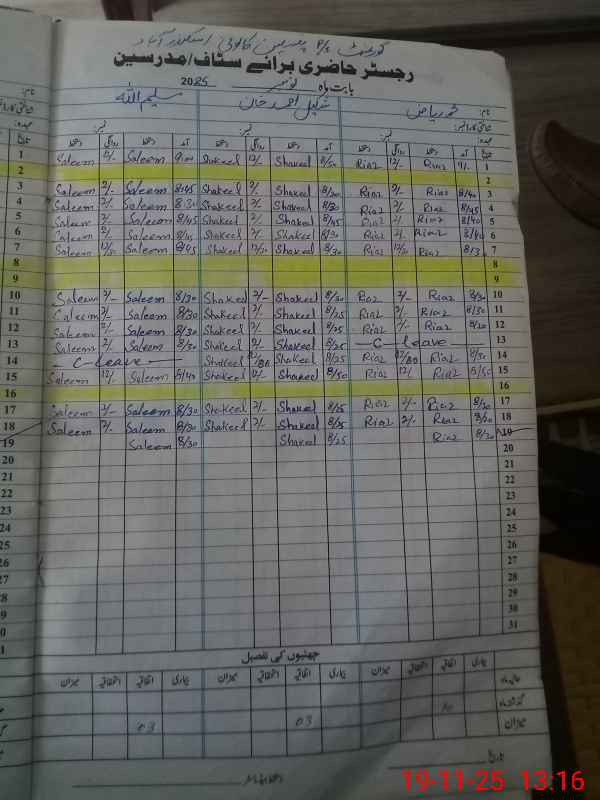 رجسٹر حاضری برائے سٹاف/مدرسین
بابت ماہ نومبر 2025
نام: محمد ریاض شکیل احمد خان سلیم اللہ
عہدہ:
تاریخ آمد دستخط روانگی دستخط آمد دستخط روانگی دستخط آمد دستخط روانگی دستخط
1 Saleem 12/- Saleem 9:00 Shakeel 12/- Shakeel 8/50 Riaz 12/- Riaz 9/- 1
2 2
3 Saleem 2/- Saleem 8:45 Shakeel 2/- Shakeel 8/30 Riaz 2/- Riaz 8/40 3
4 Saleem 2/- Saleem 8:30 Shakeel 2/- Shakeel 8/30 Riaz 2/- Riaz 8/45 4
5 Saleem 2/- Saleem 8/45 Shakeel 2/- Shakeel 8/45 Riaz 2/- Riaz 8/40 5
6 Saleem 2/- Saleem 8/45 Shakeel 2/- Shakeel 8/30 Riaz 2/- Riaz 8/40 6
7 Saleem 12/30 Saleem 8/45 Shakeel 12/30 Shakeel 8/30 Riaz 12/30 Riaz 8/30 7
8 8
9 9
10 Saleem 2/- Saleem 8/30 Shakeel 2/- Shakeel 8/30 Riaz 2/- Riaz 8/30 10
11 Saleem 2/- Saleem 8/30 Shakeel 2/- Shakeel 8/25 Riaz 2/- Riaz 8/30 11
12 Saleem 2/- Saleem 8/30 Shakeel 2/- Shakeel 8/25 Riaz 2/- Riaz 8/20 12
13 Saleem 2/- Saleem 8/30 Shakeel 2/- Shakeel 8/25 C-leave 13
14 C-leave Shakeel 12/30 Shakeel 8/25 Riaz 12/30 Riaz 8/30 14
15 Saleem 12/- Saleem 8/40 Shakeel 12/- Shakeel 8/50 Riaz 12/- Riaz 8/50 15
16 16
17 Saleem 2/- Saleem 8/30 Shakeel 2/- Shakeel 8/25 Riaz 2/- Riaz 8/30 17
18 Saleem 2/- Saleem 8/30 Shakeel 2/- Shakeel 8/25 Riaz 2/- Riaz 8/20 18
19 Saleem 8/30 Shakeel 8/25 Riaz 8/20 19
20 20
21 21
22 22
23 23
24 24
25 25
26 26
27 27
28 28
29 29
30 30
31 31
چھٹیوں کی تفصیل
بیماری اتفاقیہ استحقاقیہ میزان بیماری اتفاقیہ استحقاقیہ میزان بیماری اتفاقیہ استحقاقیہ میزان
حالیہ ماہ
گذشتہ ماہ
میزان 03 03
تاریخ
19-11-25 13:16